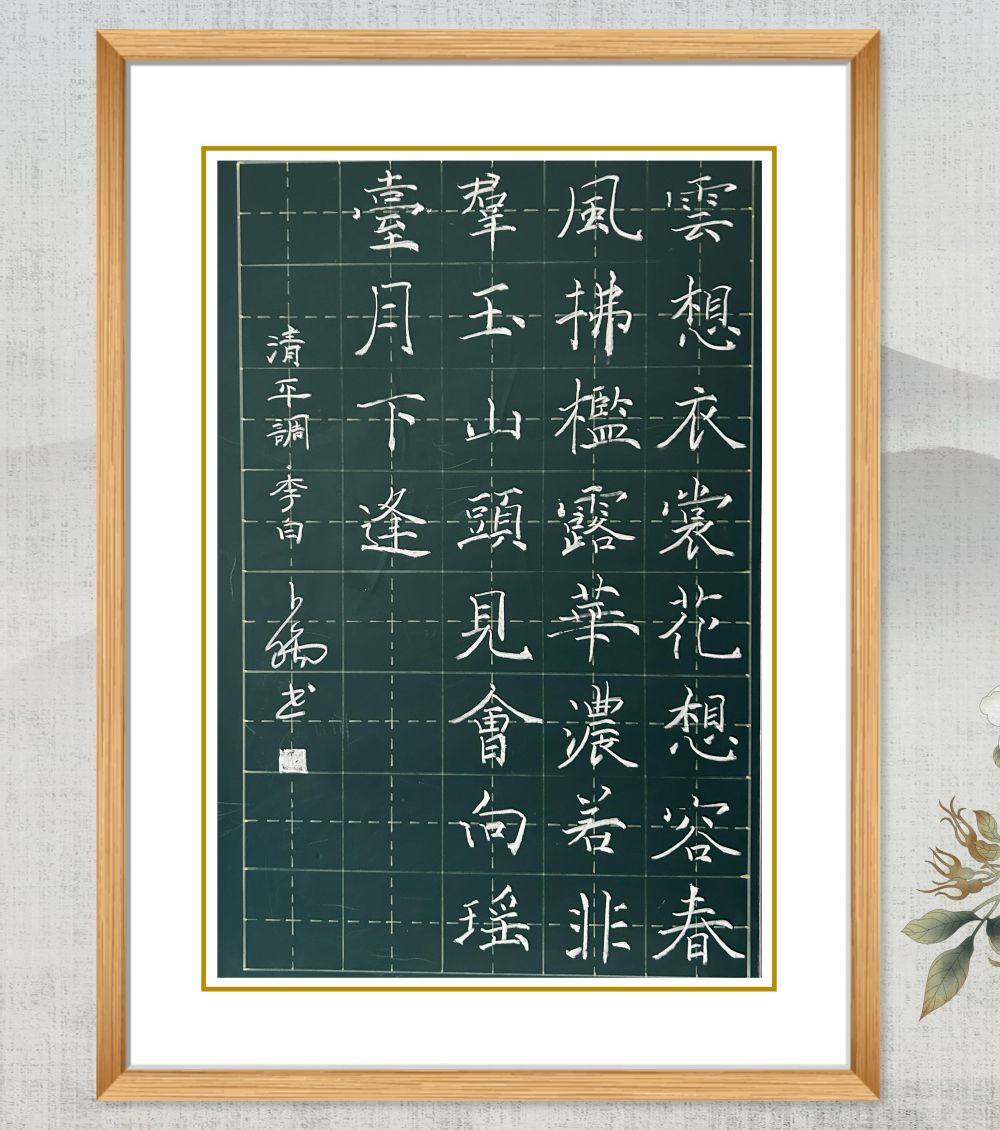 雲想衣裳花想容春
風拂檻露華濃若非
羣玉山頭見會向瑶
臺月下逢
清平調·李白
书